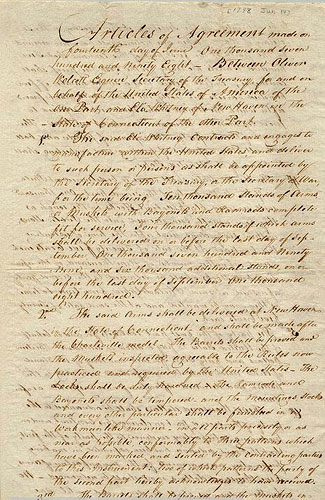 1798 Jun 14
Articles of Agreement made on
fourteenth day of June One thousand seven
hundred and Ninety Eight — Between Oliver
Wolcott Esquire Secretary of the Treasury for and on
behalf of the United States of America of the
One Part, and Eli Whitney of New Haven in the
State of Connecticut of the other Part.
The said Eli Whitney Contracts and engages to
manufacture within the United States and deliver
to such person or persons as shall be appointed by
the Secretary of the Treasury, or the Secretary of War
for the time being. Ten thousand Stands of Arms
or Muskets, with Bayonets and Ramrods complete
fit for service. Four thousand stands of which arms
shall be delivered on or before the last day of Sep-
tember One thousand seven hundred and Ninety
Nine, and Six thousand additional stands, on or
before the last day of September One thousand
eight hundred.
2nd The said Arms shall be delivered at New Haven
in the State of Connecticut, and shall be made after
the Charleville model — The Barrels shall be proved and
the Muskets inspected agreeable to the Rules now
practiced and required by the United States — The
Locks shall be
Bayonets shall be tempered and the Mountings Stocks
and every other particular shall be finished in a
Workmanlike manner in all parts precisely or as
near as possible conformably to three patterns which
have been marked and sealed by the contracting parties
to this Instrument; two of which patterns the party of
the second part hereby acknowledges to have received.
3rd The Barrels shall